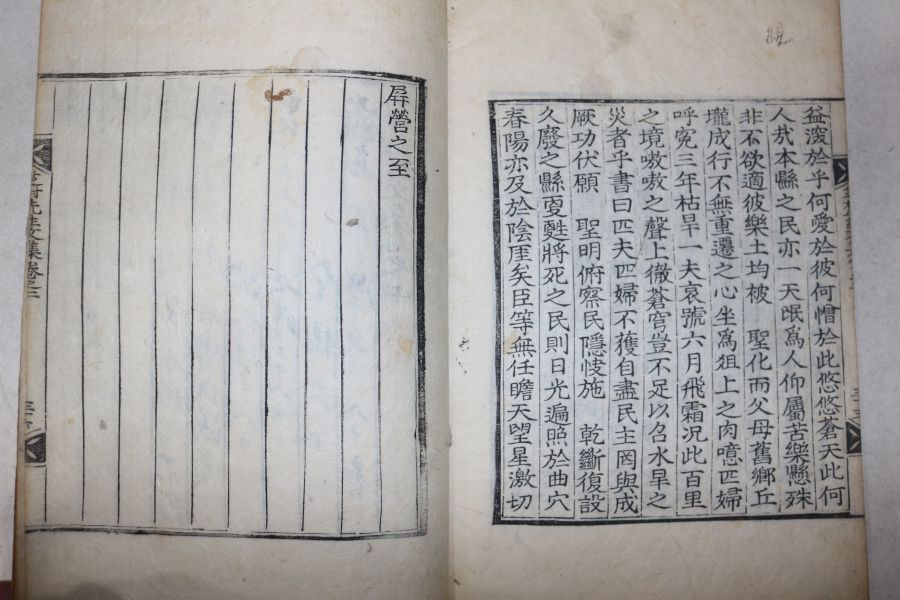 益深於乎何愛於彼何憎於此悠悠蒼天此何
人㢤本縣之民亦一天氓爲人仰屬苦樂懸殊
非不欲適彼樂土均被 聖化而父母舊鄉丘
壠成行不無重遷之心坐爲俎上之肉噫匹婦
呼寃三年枯旱一夫哀號六月飛霜況此百里
之境嗷嗷之聲上徹蒼穹豈不足以召水旱之
災者乎書曰匹夫匹婦不獲自盡民主罔與成
厥功伏願 聖明俯察民隱悛施 乾斷復設
久廢之縣更甦將死之民則日光遍照於曲穴
春陽亦及於陰厓矣臣等無任瞻天望星激切
屛營之至
先生文集卷之二